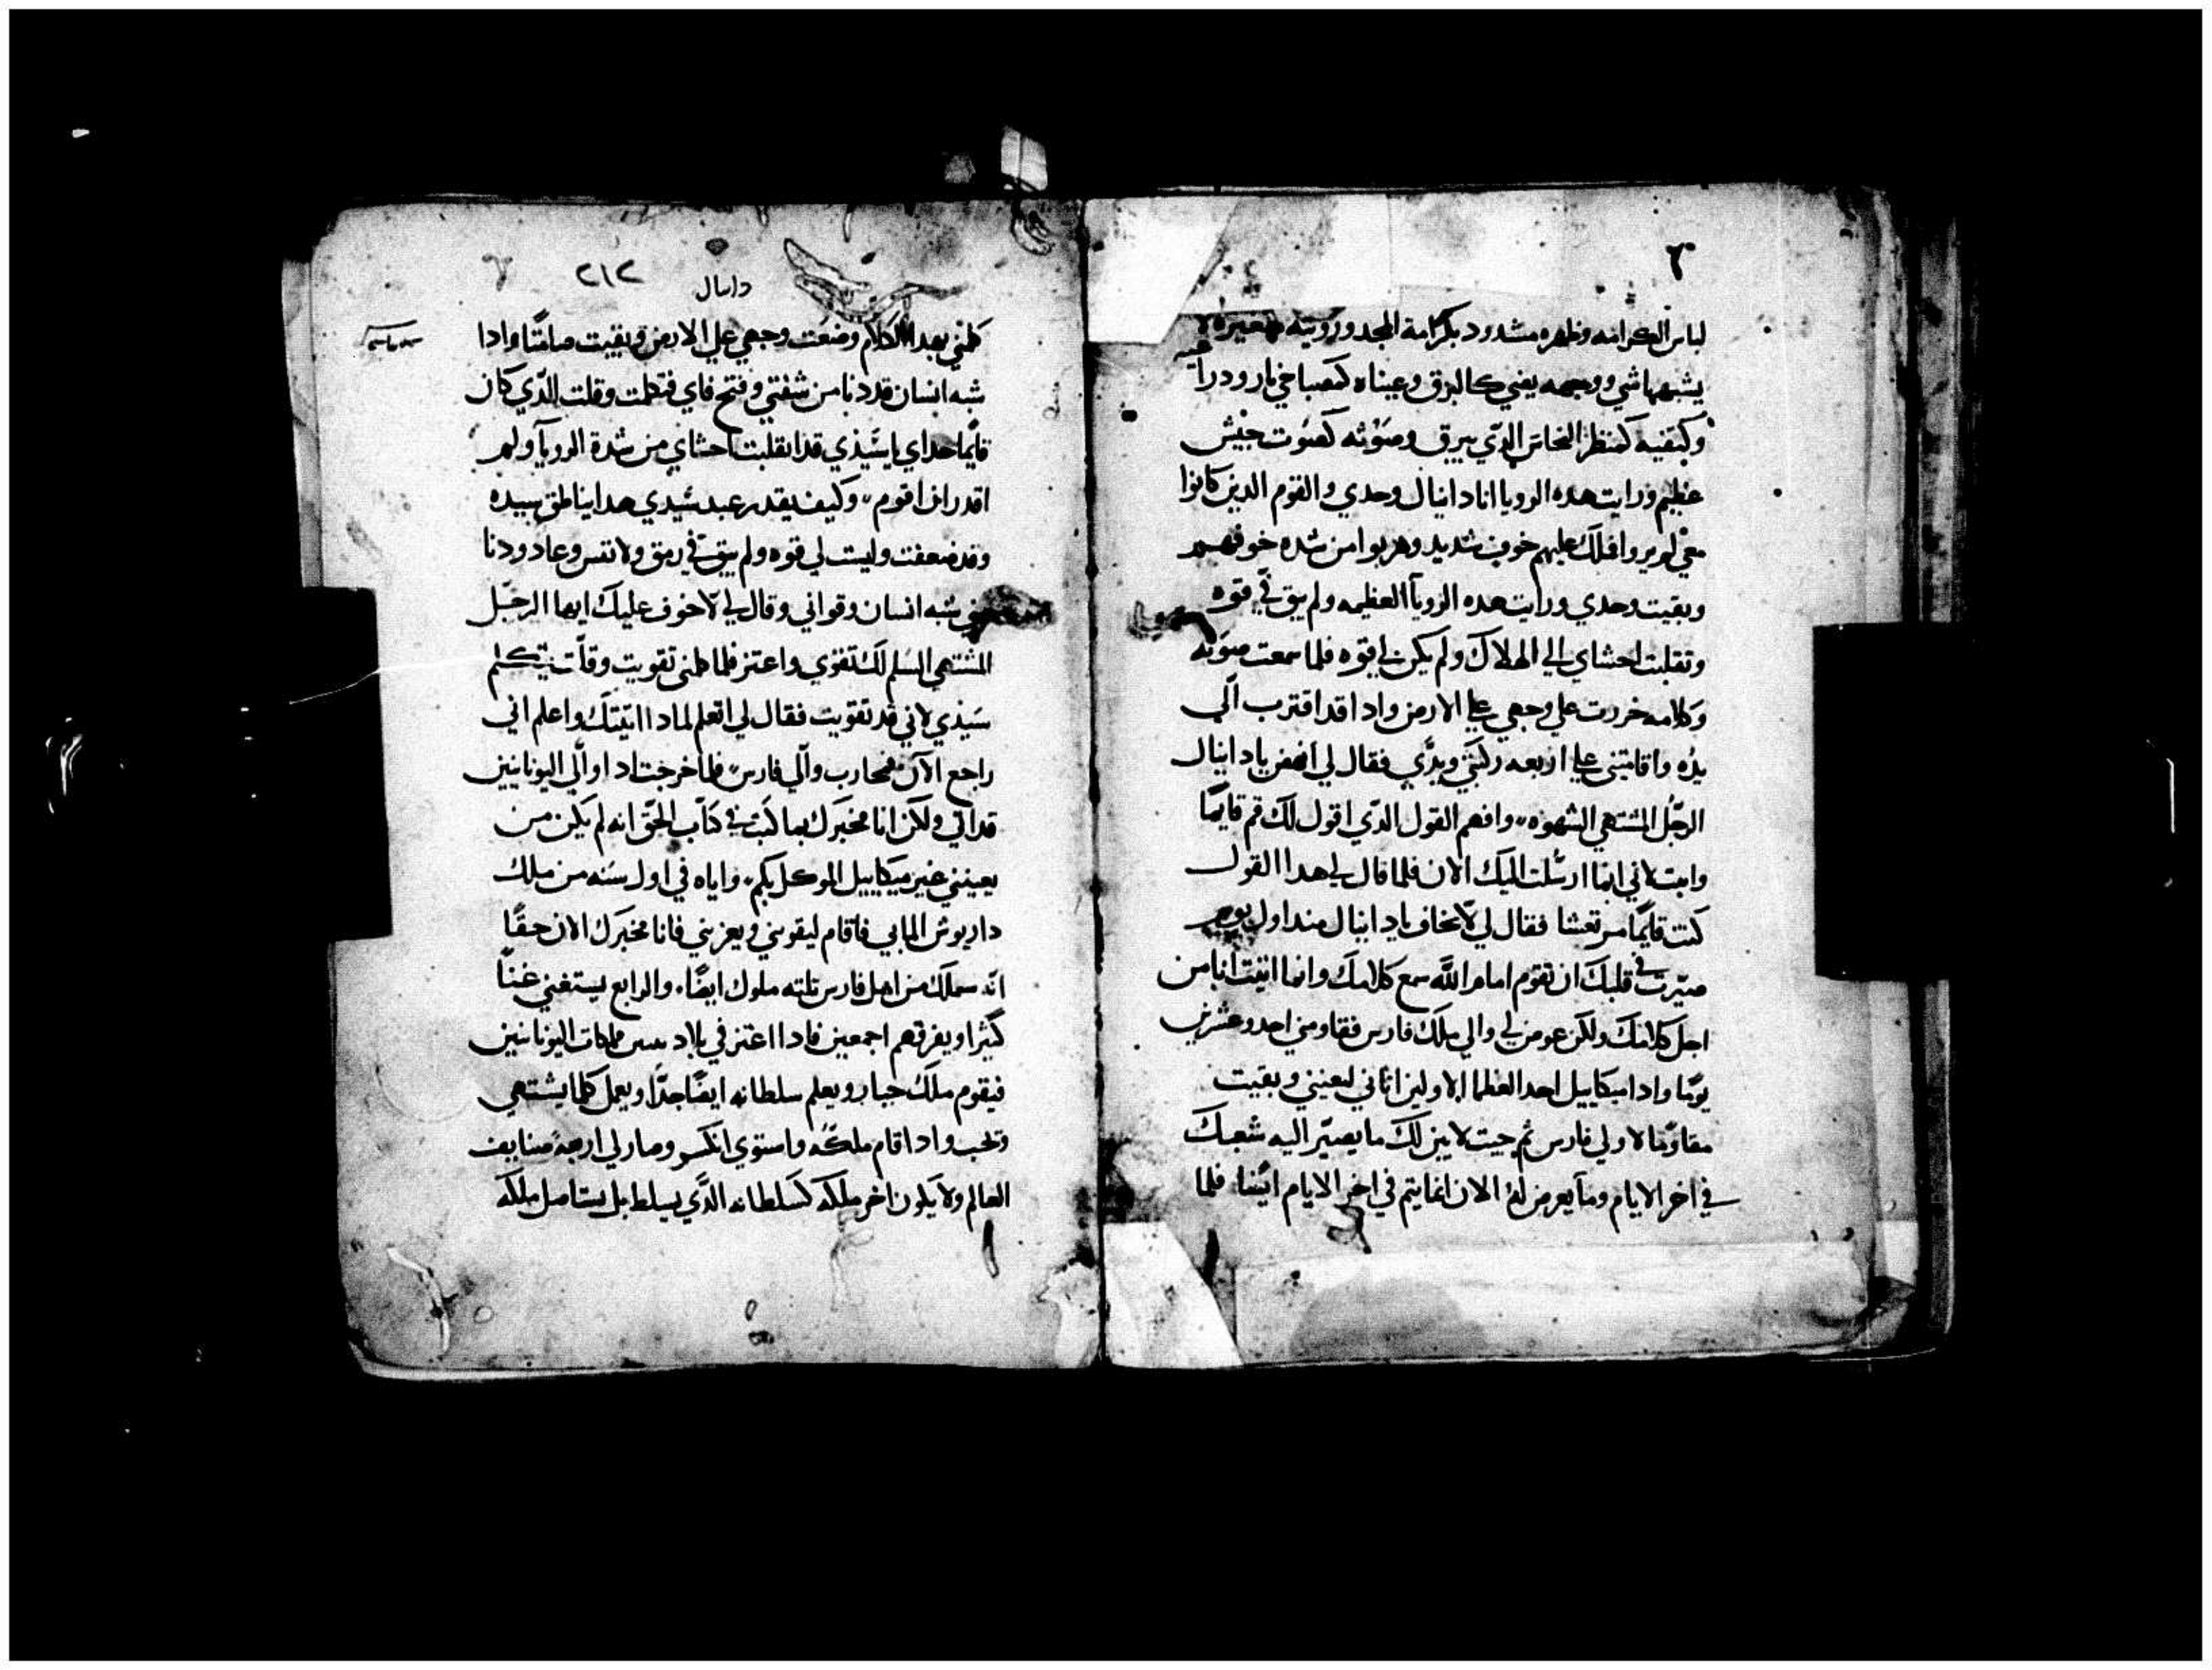 لباس الكرامه وظهره مشدود بكرامة المجد ورويته متغيره لا
يشبهها شي ووجهه يضي كالبرق وعيناه كمصباحي نار ودراعيه
وكتفيه كمنظر النحاس الدي يبرق وصوته كصوت جيش
عظيم ورايت هده الرويا انا دانيال وحدي والقوم الدين كانوا
معي لم يروا فلك عليهم خوف شديد وهربوا من شده خوفهم
وبقيت وحدي ورايت هده الرويا العظيمه ولم يبق في قوه
وتقلبت احشاي الي الهلاك ولم يكن لي قوه فلما سمعت صوته
وكلامه خررت علي وجهي علي الارض وادا قد اقترب الي
يده واقامتني علي اربعه ركبتي ويدي فقال لي انهض يا دانيال
الرجل المشتهي الشهوه وافهم القول الدي اقول لك قم قايما
واتبت لاني انما ارسلت اليك الان فلما قال لي هدا القول
كنت قايما مرتعشا فقال لي لا تخاف يا دانيال مند اول يوم
صيرت في قلبك ان تقوم امام الله سمع كلامك وانما اتيت انا من
اجل كلامك ولكن عرض لي والي ملك فارس فقاومني احد وعشرين
يوما وادا ميكاييل احد العظما الاولين اتاني ليعينني وبقيت
مقاوما لاولي فارس تم جيت لابين لك ما يصير اليه شعبك
في اخر الايام وما يعرض له الان انما يتم في اخر الايام ايضا فلما
٢١٢
دانيال
كلمني بهدا الكلام وضعت وجهي علي الارض وبقيت صامتا وادا
شبه انسان قد دنا من شفتي وفتح فاي فتكلمت وقلت للدي كان
قايما حداي يا سيدي قد انقلبت احشاي من شدة الرويا ولم
اقدر ان اقوم وكيف يقدر عبد سيدي هدا يناطق سيده
وقد ضعفت وليست لي قوه ولم يبق في رمق ولا نفس وعاد ودنا
مني شبه انسان وقواني وقال لي لا خوف عليك ايها الرجل
المشتهي السلم لك تقوي واعتز فلما كلمني تقويت وقلت يتكلم
سيدي لاني قد تقويت فقال لي اتعلم لمادا اتيتك واعلم اني
راجع الان فمحارب والي فارس فلما خرجت ادا والي اليونانيين
قد اتي ولكن انا مخبرك بما كتب في كتاب الحق انه لم يكن من
يعينني غير ميكاييل الموكل بكم واياه في اول سنه من ملك
داريوش المابي فاقام ليقويني ويعزيني فانا مخبرك الان حقا
انه سملك من اهل فارس تلته ملوك ايضا والرابع يستغني غنا
كثيرا ويفرقهم اجمعين فادا اعتز في بلاد مملكات اليونانيين
فيقوم ملك جبار ويعلم سلطانه ايضا جدا ويعمل كلما يشتهي
وتحب وادا قام ملكه واستوي انكسر وصار لي اربعه
العالم ولا يكون اخر ملكه كسلطانه الدي يسلط بل يستاصل ملكه